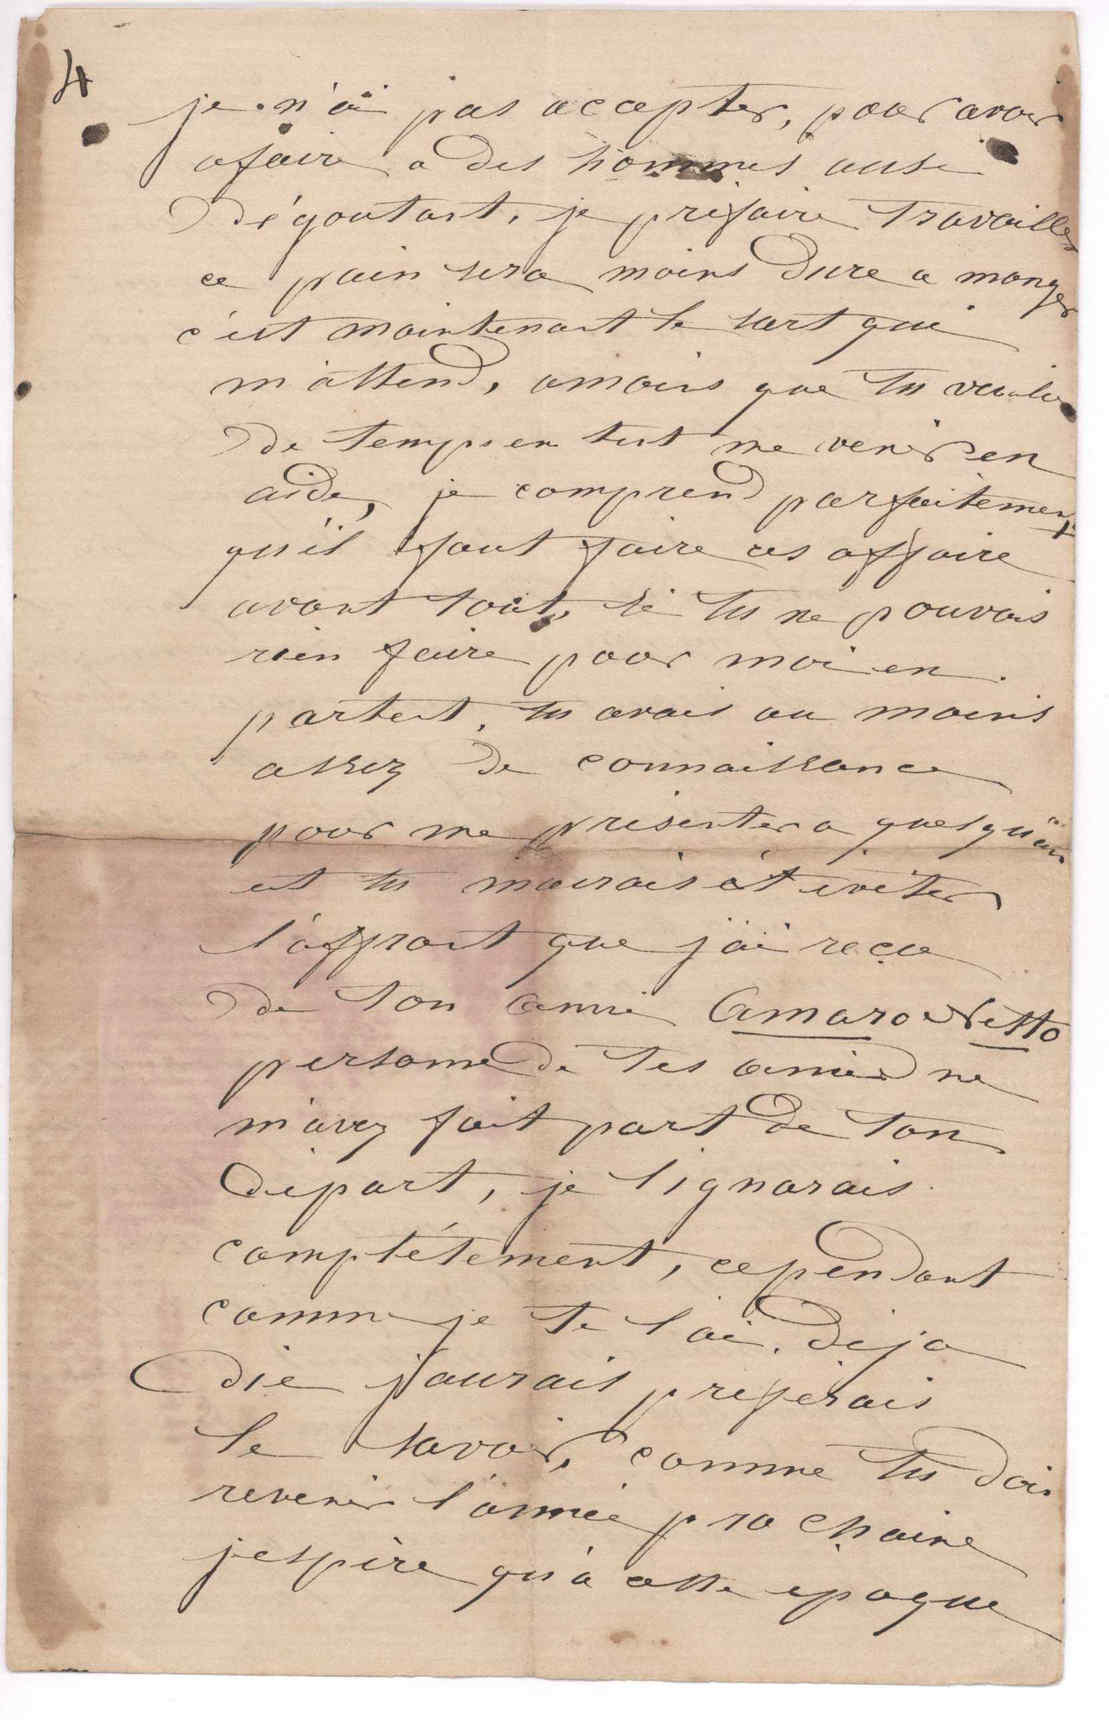 4
je n'ai pas accepter, pour avoir
afaire a des hommes ausi
dégoutant, je prefaire travailler
ce pain sera moins dure a manger
c'est maintenant le sort qui
m'attend, amoins que tu veuile
de temps en test me venir en
aide, je comprend parfaitement
qu'il faut faire ces affaire
avant tout, si tu ne pouvais
rien faire pour moi en
partent, tu avais au moins
assez de connaissance
pour me présenter a quesqu'un
et tu m'aurais ét eviter
l'affront que j'ai reçue
de ton amie Amaro Netto
personne de tes amies ne
m'avez fait part de ton
départ, je l'ignorais
complétement, cependant
comme je te l'ai deja
die j'aurais preferais
le savoir, comme tu dois
revenir l'année prochaine
j'espère qu'a cette epoque